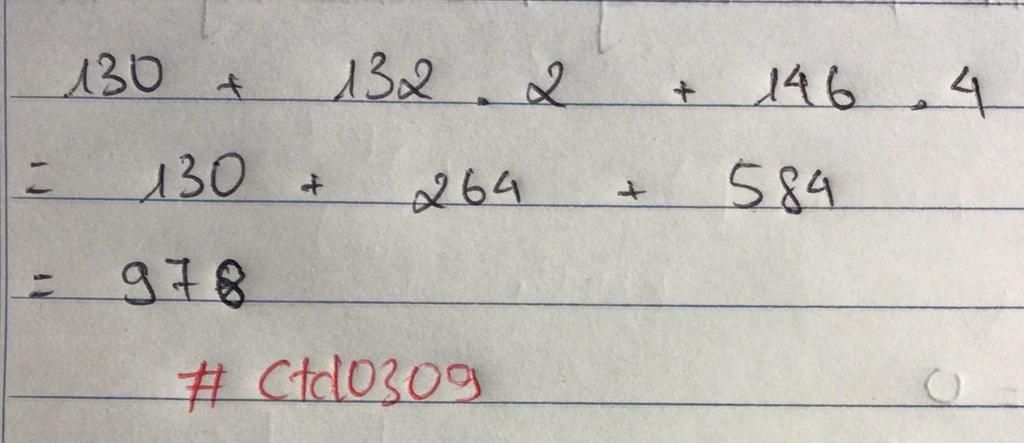 130 + 132 . 2 + 146 . 4
= 130 + 264 + 584
= 978
# Ctd0309